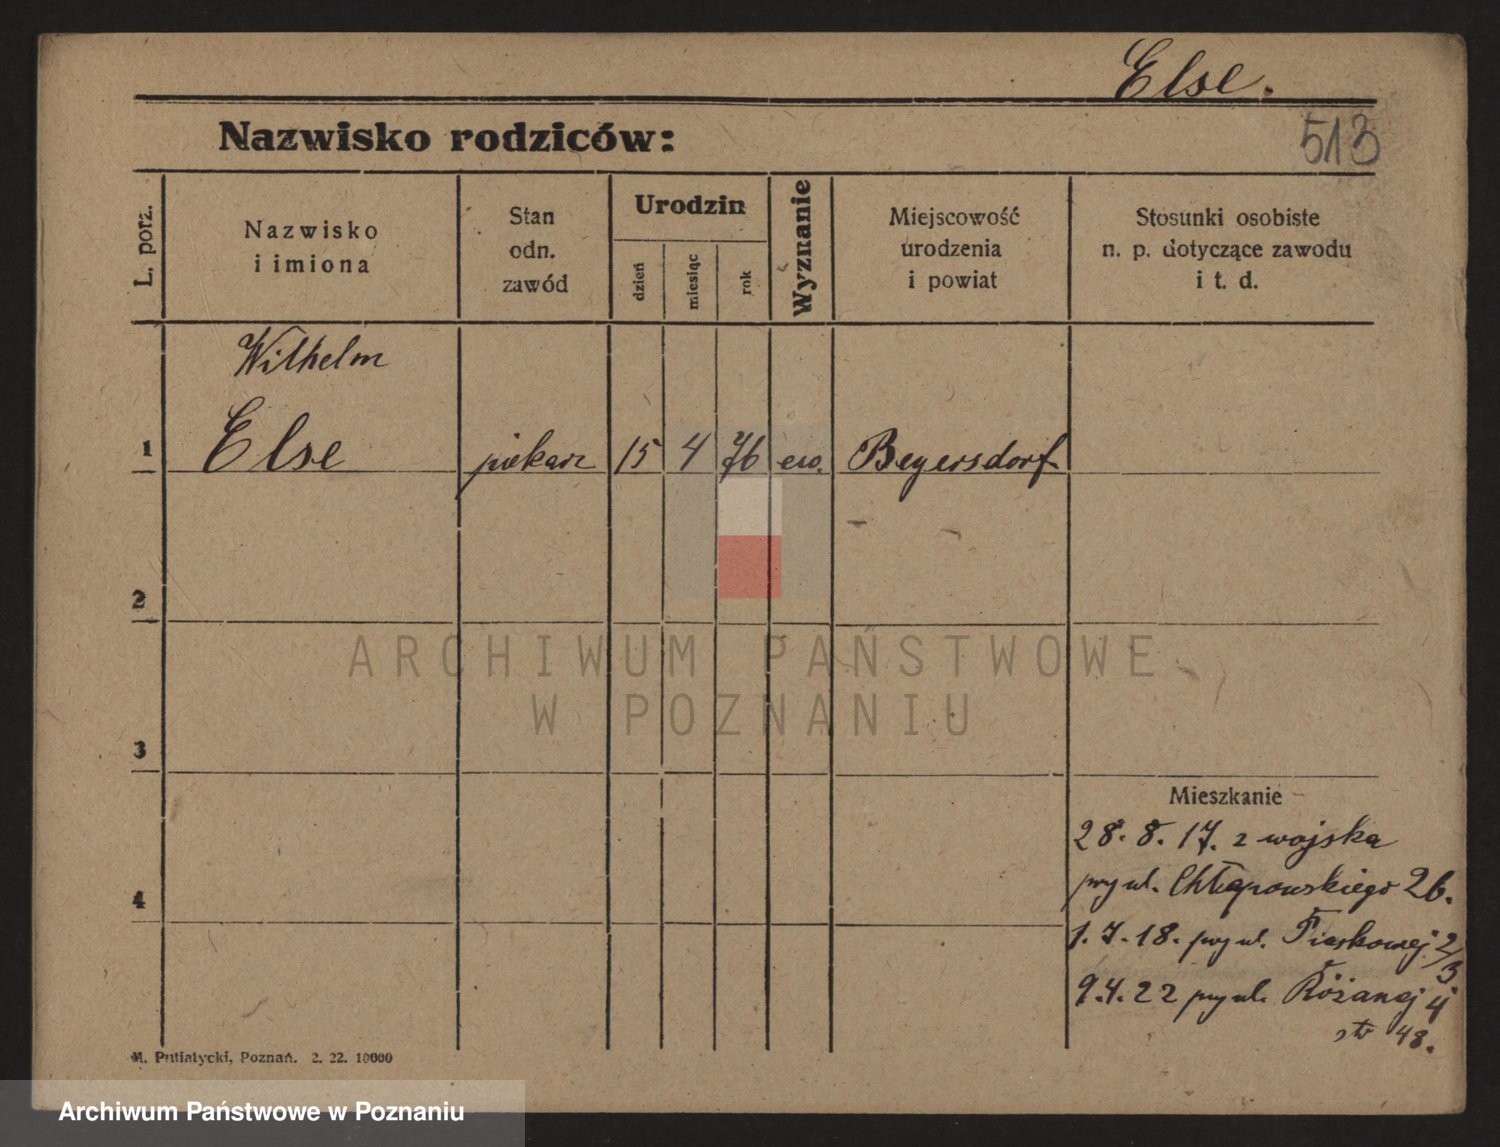 Else.
Nazwisko rodziców:
513
L. porz.
Nazwisko
i imiona
Stan
odn.
zawód
Urodzin
dzień
miesiąc
rok
Wyznanie
Miejscowość
urodzenia
i powiat
Stosunki osobiste
n. p. dotyczące zawodu
i t. d.
Wilhelm
1 Else piekarz 15 4 76 ew. Beyersdorf.
2
ARCHIWUM PAŃSTWOWE
W POZNANIU
3
Mieszkanie
28. 8. 17. z wojska
przy ul. Chłapowskiego 26.
4
1. 7. 18. przy ul. Piaskowej 2/3
9. 4. 22 przy ul. Różanej 4
str 48.
M. Putiatycki, Poznań. 2. 22. 10000
Archiwum Państwowe w Poznaniu